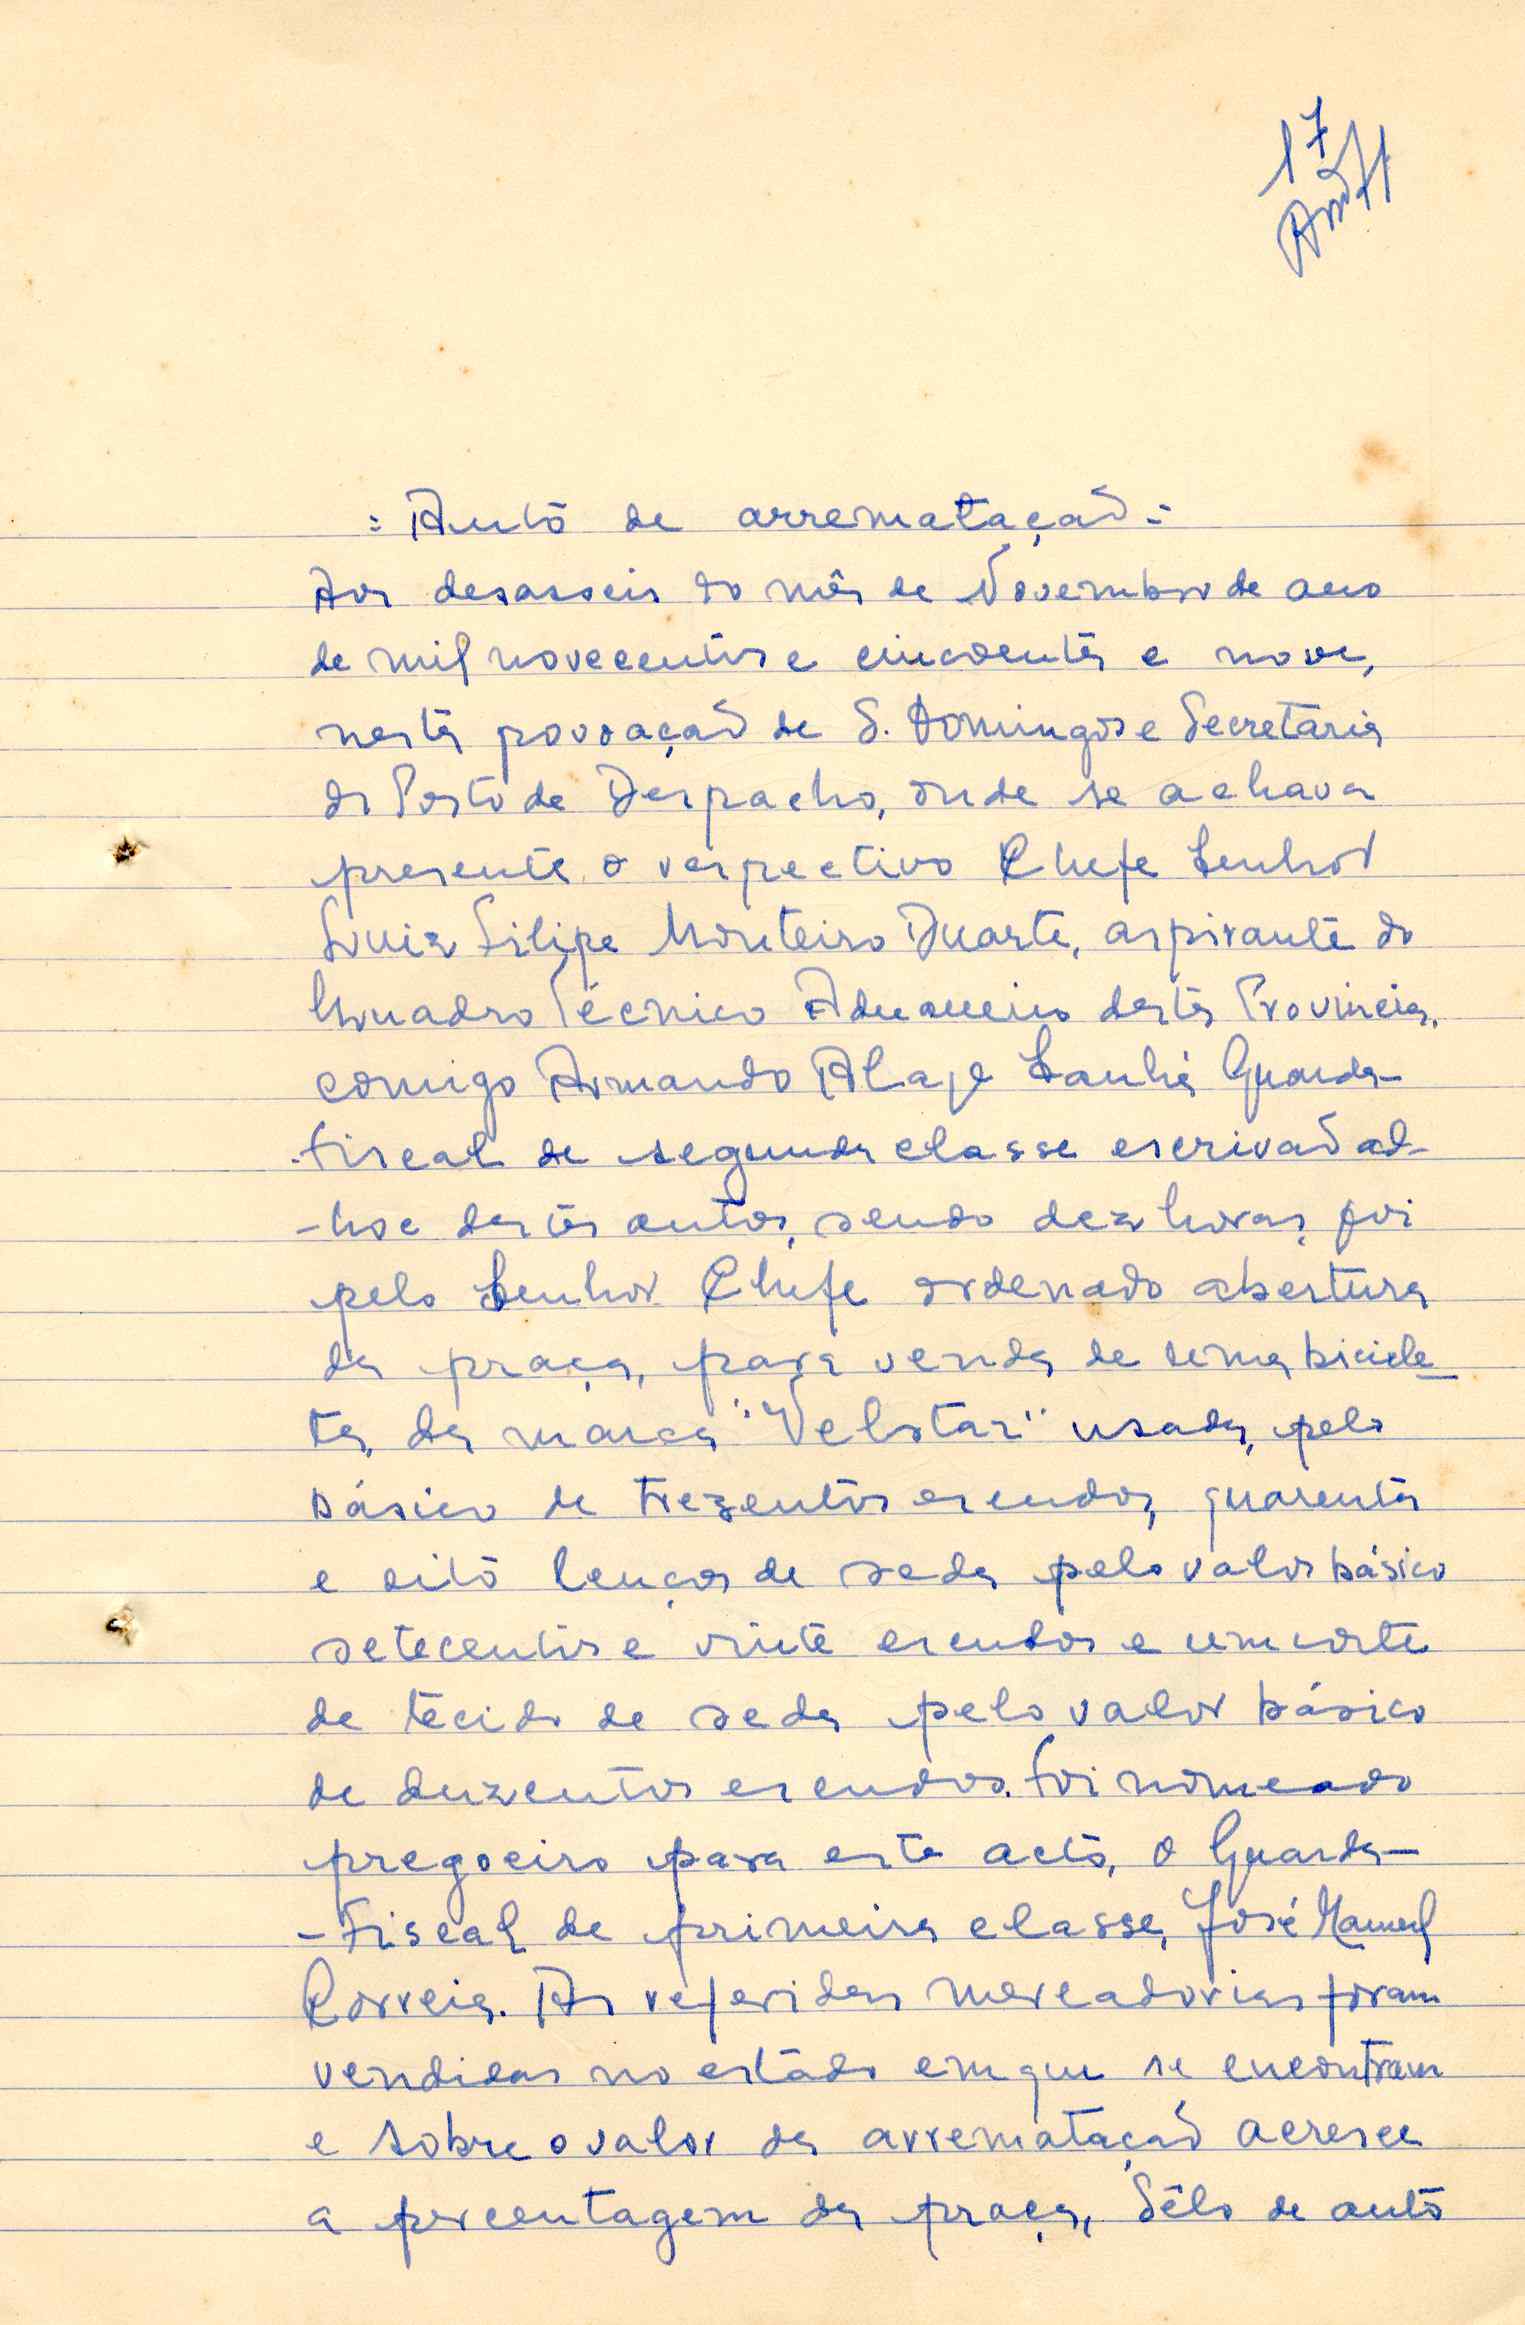 17
= Auto de arrematação =
Aos desasseis do mês de Novembro de ano
de mil novecentos e cincoenta e nove,
nesta povoação de S. Domingos e Secretaria
do Posto de Despacho, onde se achava
presente o respectivo Chefe Senhor
Luiz Filipe Monteiro Duarte, aspirante do
Quadro Técnico Aduaneiro desta Provincia,
comigo Armando Alage Sanhá Guarda-
fiscal de segunda classe escrivão ad-
-hoc destes autos, sendo dez horas, foi
pelo Senhor Chefe ordenado abertura
da praça, para venda de uma bicicle
ta, da marca "Velstar" usada, pelo
básico de trezentos escudos, quarenta
e oito lenços de seda pelo valor básico
setecentos e vinte escudos e um corte
de tecido de seda pelo valor básico
de duzentos escudos. Foi nomeado
pregoeiro para este acto, o Guarda-
-Fiscal de primeira classe, José Manuel
Correia. As referidas mercadorias foram
vendidas no estado em que se encontram
e sobre o valor da arrematação acresce
a percentagem da praça, Sêlo de auto